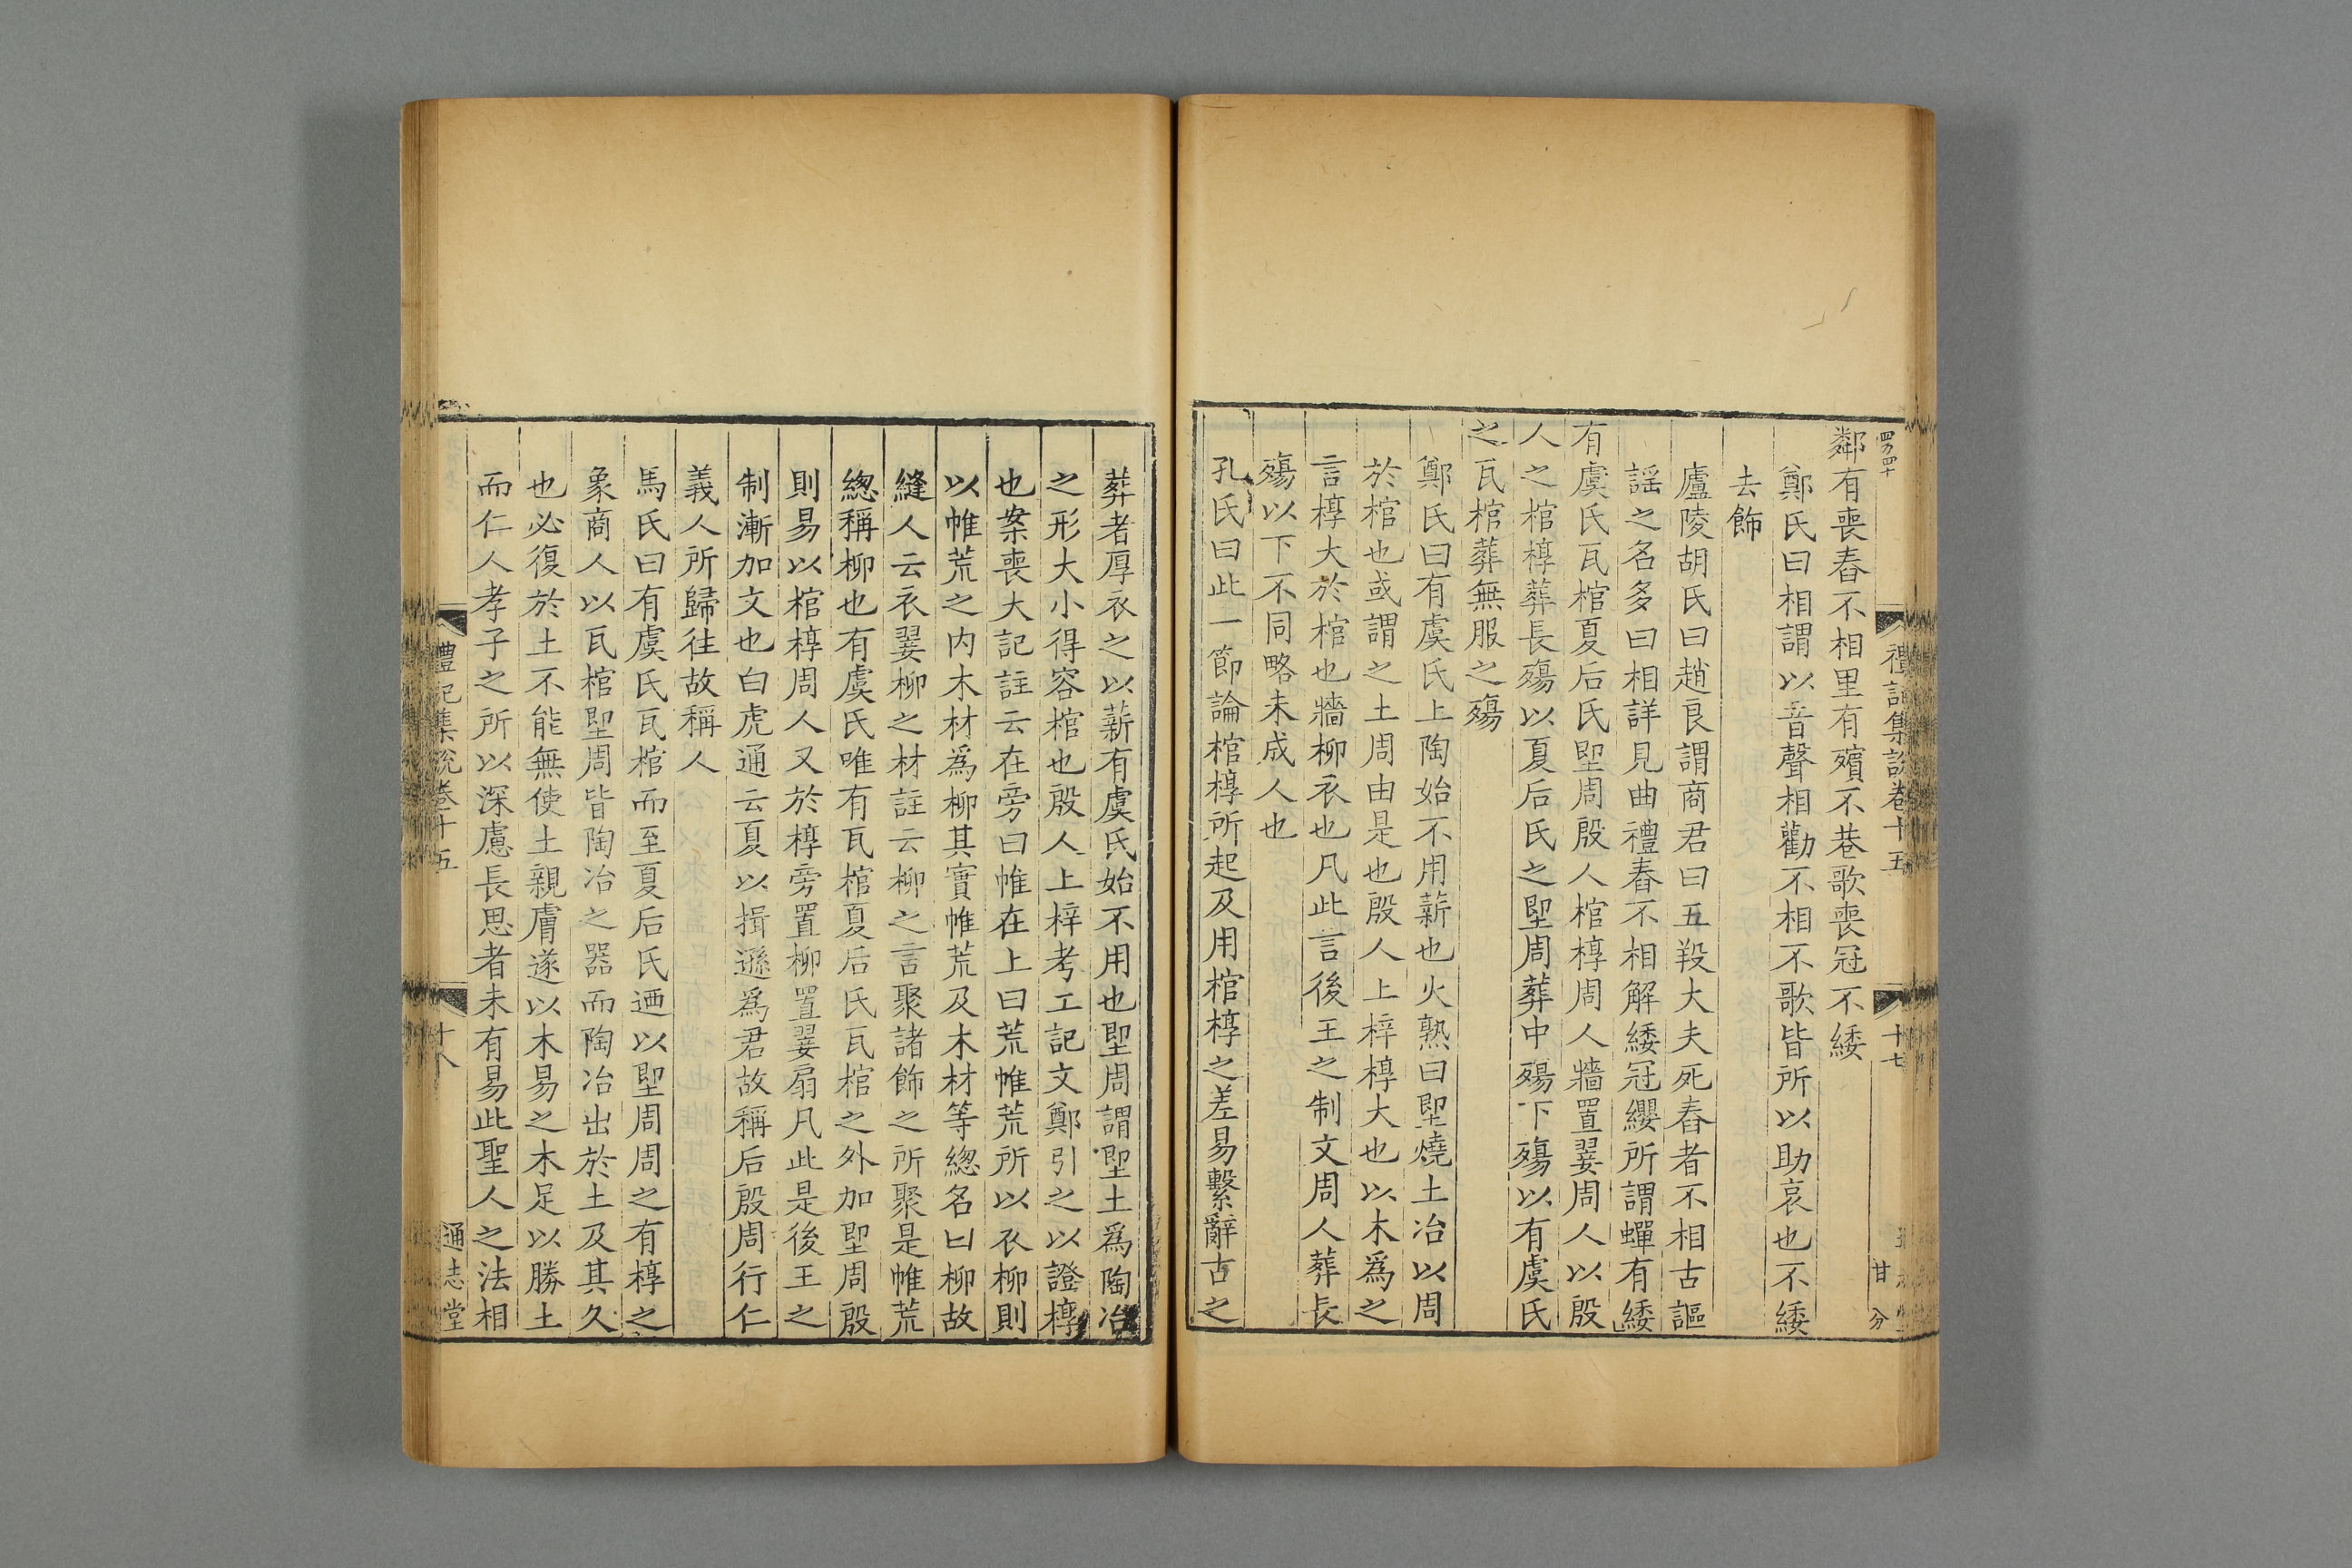 禮記集說卷十五
十七
鄰有喪舂不相里有殯不巷歌喪冠不緌
鄭氏曰相謂以音聲相勸不相不歌皆所以助哀也不緌
去飾
廬陵胡氏曰趙良謂商君曰五羖大夫死舂者不相古謳
謡之名多曰相詳見曲禮舂不相解緌冠纓所謂蟬有緌
有虞氏瓦棺夏后氏堲周殷人棺椁周人牆置翣周人以殷
人之棺椁葬長殤以夏后氏之堲周葬中殤下殤以有虞氏
之瓦棺葬無服之殤
鄭氏曰有虞氏上陶始不用薪也火熟曰堲燒土冶以周
於棺也或謂之土周由是也殷人上梓椁大也以木為之
言椁大於棺也牆柳衣也凡此言後王之制文周人葬長
殤以下不同略未成人也
孔氏曰此一節論棺椁所起及用棺椁之差易繫辭古之
葬者厚衣之以薪有虞氏始不用也堲周謂堲土爲陶冶
之形大小得容棺也殷人上梓考工記文鄭引之以證椁
也案喪大記註云在旁曰帷在上曰荒帷荒所以衣柳則
以帷荒之内木材爲柳其實帷荒及木材等緫名曰柳故
縫人云衣翣柳之材註云柳之言聚諸飾之所聚是帷荒
緫稱柳也有虞氏唯有瓦棺夏后氏瓦棺之外加堲周殷
則易以棺椁周人又於椁旁置柳置翣扇凡此是後王之
制漸加文也白虎通云夏以揖遜爲君故稱后殷周行仁
義人所歸往故稱人
馬氏曰有虞氏瓦棺而至夏后氏迺以堲周周之有椁之
象商人以瓦棺堲周皆陶冶之器而陶冶出於土及其久
也必復於土不能無使土親膚遂以木易之木足以勝土
而仁人孝子之所以深慮長思者未有易此聖人之法相
禮記集說卷十五
十八
通志堂